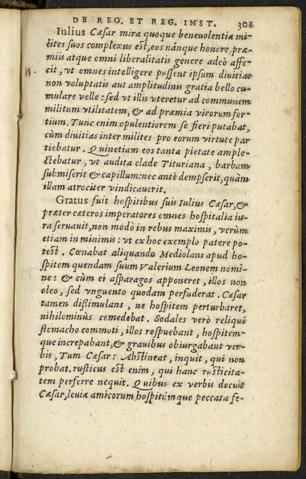 DE REG. ET REG. INST. 301
Iulius Cæsar mira quoque beneuolentia mi-
lites suos complexus est, eos nánque honore, præ-
mijs atque omni liberalitatis genere adeò affe-
cit, vt omnes intelligere possent ipsum diuitias
non voluptatis aut amplitudinis gratia bello cu-
mulare velle: sed vt illis vteretur ad communem
militum vtilitatem, & ad præmia virorum for-
tium. Tunc enim opulentiorem se fieri putabat,
cùm diuitias inter milites pro eorum virtute par
tiebatur. Quinetiam eos tanta pietate ample-
ctebatur, vt audita clade Tituriana, barbam
submiserit & capillum: nec antè dempserit, quàm
illam atrociter vindicauerit.
Gratus fuit hospitibus suis Iulius Cæsar, &
præter cæteros imperatores omnes hospitalia iu-
ra seruauit, non modò in rebus maximis, verùm
etiam in minimis: vt ex hoc exemplo patere po-
test. Cœnabat aliquando Mediolani apud ho-
spitem quendam suum Valerium Leonem nomi-
ne: & cùm ei asparagos apponeret, illos non
oleo, sed vnguento quodam persuderat. Cæsar
tamen dissimulans, ne hospitem perturbaret,
nihilominùs comedebat. Sodales verò reliqui
stomacho commoti, illos respuebant, hospitem-
que increpabant, & grauibus obiurgabant ver-
bis, Tum Cæsar: Abstineat, inquit, qui non
probat. rusticus est enim, qui hanc rusticita-
tem perferre nequit. Quibus ex verbis docuit
Cæsar, leuia amicorum hospitúmque peccata fe-